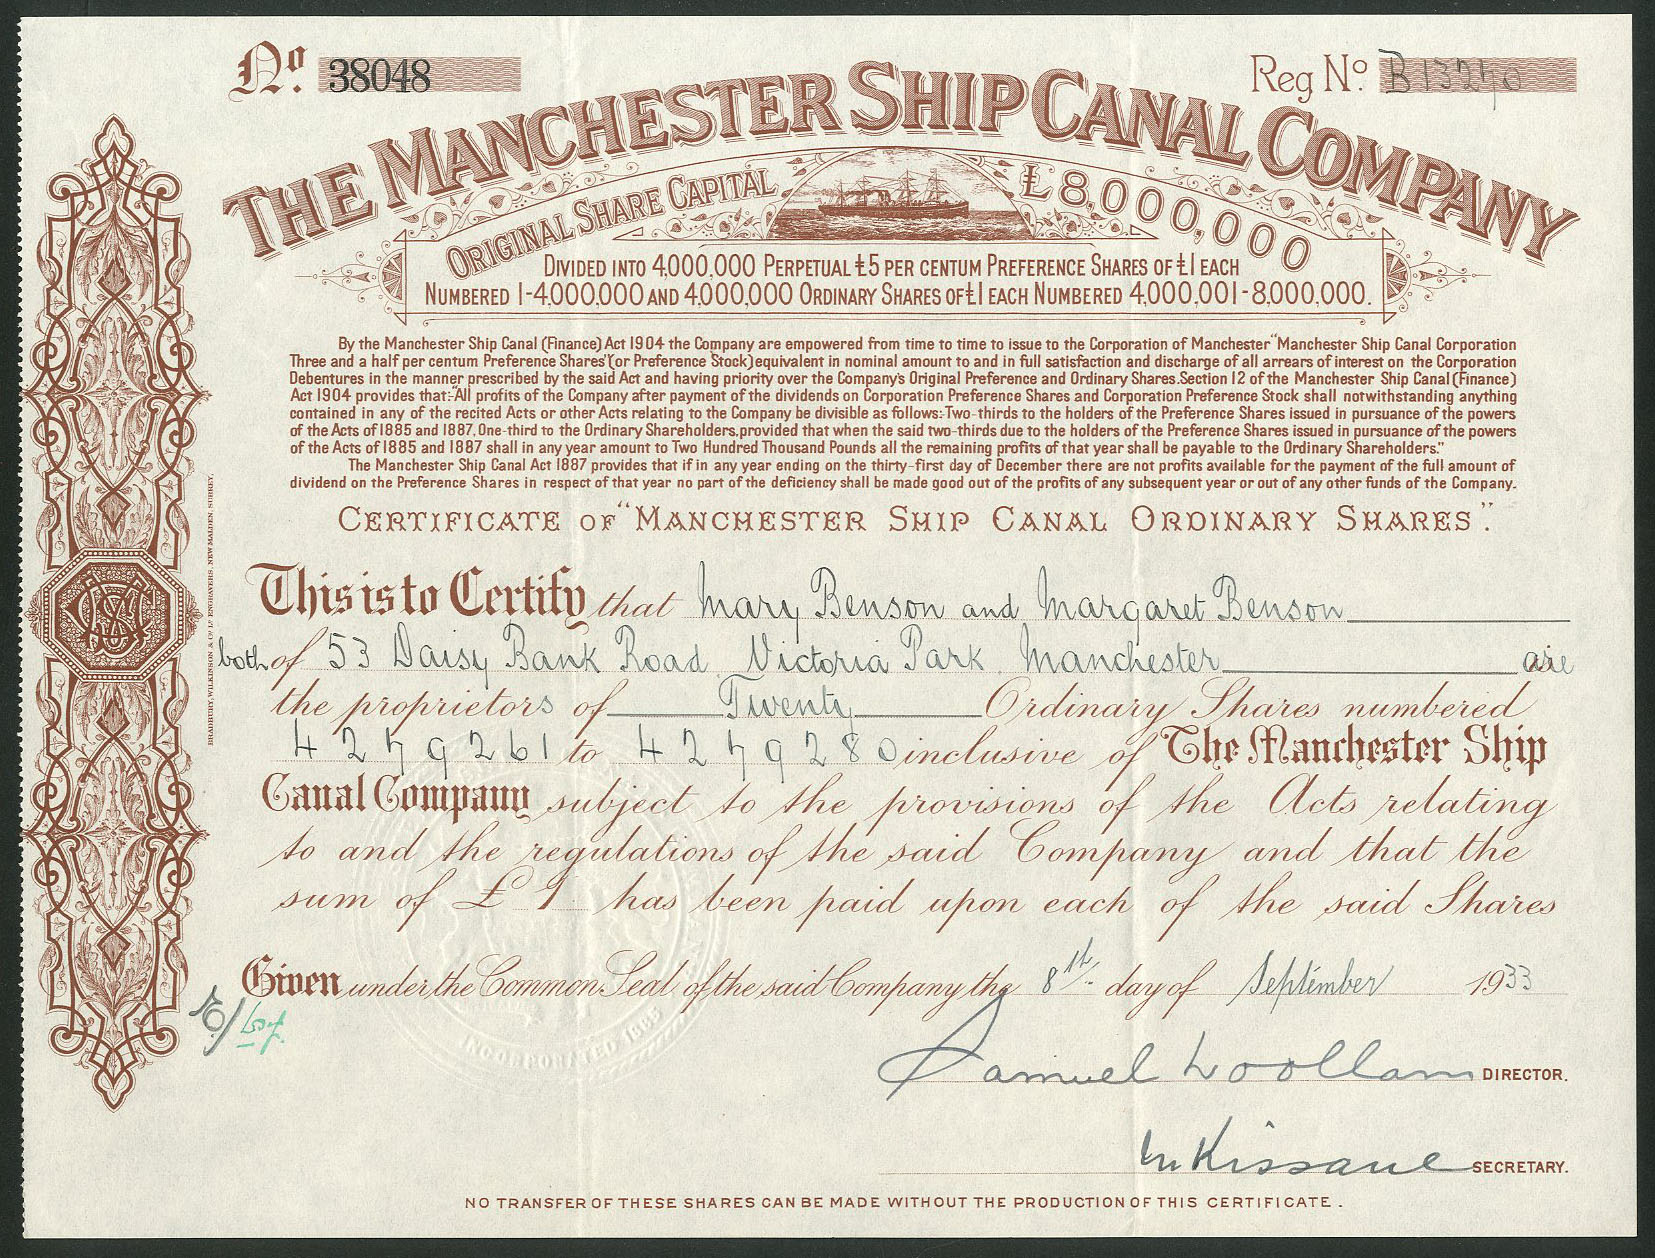 No. 38048
Reg No. B13270
THE MANCHESTER SHIP CANAL COMPANY
ORIGINAL SHARE CAPITAL £8,000,000
DIVIDED INTO 4,000,000 PERPETUAL £5 PER CENTUM PREFERENCE SHARES OF £1 EACH
NUMBERED 1-4,000,000 AND 4,000,000 ORDINARY SHARES OF £1 EACH NUMBERED 4,000,001-8,000,000.
By the Manchester Ship Canal (Finance) Act 1904 the Company are empowered from time to time to issue to the Corporation of Manchester "Manchester Ship Canal Corporation
Three and a half per centum Preference Shares" (or Preference Stock) equivalent in nominal amount to and in full satisfaction and discharge of all arrears of interest on the Corporation
Debentures in the manner prescribed by the said Act and having priority over the Company's Original Preference and Ordinary Shares. Section 12 of the Manchester Ship Canal (Finance)
Act 1904 provides that:- "All profits of the Company after payment of the dividends on Corporation Preference Shares and Corporation Preference Stock shall notwithstanding anything
contained in any of the recited Acts or other Acts relating to the Company be divisible as follows:- Two-thirds to the holders of the Preference Shares issued in pursuance of the powers
of the Acts of 1885 and 1887. One-third to the Ordinary Shareholders, provided that when the said two-thirds due to the holders of the Preference Shares issued in pursuance of the powers
of the Acts of 1885 and 1887 shall in any year amount to Two Hundred Thousand Pounds all the remaining profits of that year shall be payable to the Ordinary Shareholders."
The Manchester Ship Canal Act 1887 provides that if in any year ending on the thirty-first day of December there are not profits available for the payment of the full amount of
dividend on the Preference Shares in respect of that year no part of the deficiency shall be made good out of the profits of any subsequent year or out of any other funds of the Company.
CERTIFICATE OF "MANCHESTER SHIP CANAL ORDINARY SHARES".
This is to Certify that Mary Benson and Margaret Benson
both of 53 Daisy Bank Road Victoria Park Manchester are
the proprietors of Twenty Ordinary Shares numbered
4279261 to 4279280 inclusive of The Manchester Ship
Canal Company subject to the provisions of the Acts relating
to and the regulations of the said Company and that the
sum of £ 1 has been paid upon each of the said Shares
Given under the Common Seal of the said Company the 8th day of September 1933
INCORPORATED 1885
Samuel Woollam DIRECTOR.
Kissane SECRETARY.
NO TRANSFER OF THESE SHARES CAN BE MADE WITHOUT THE PRODUCTION OF THIS CERTIFICATE.
BRADBURY, WILKINSON & Co. Ld. ENGRAVERS, NEW MALDEN, SURREY.